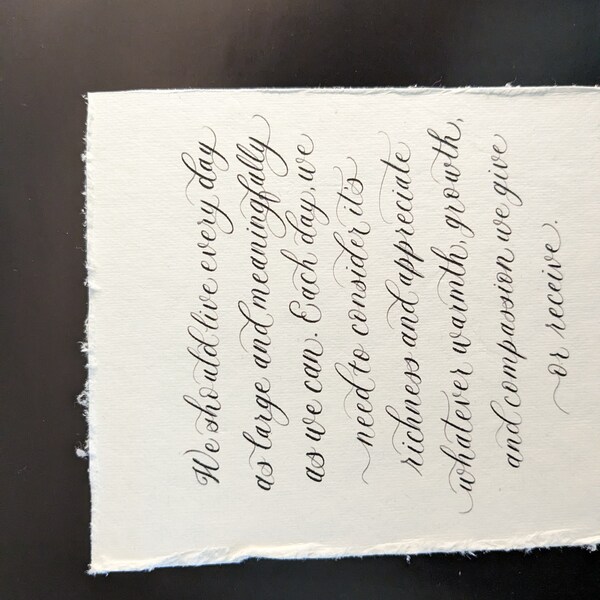 We should live every day
as large and meaningfully
as we can. Each day, we
need to consider it's
richness and appreciate
whatever warmth, growth,
and compassion we give
or receive.